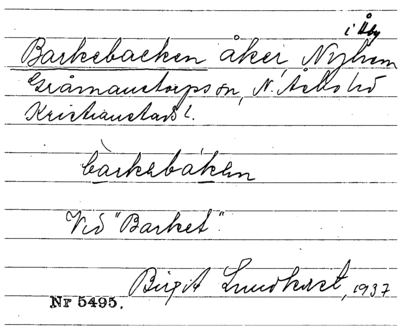 i Åby
Barkebacken åker, Nyhem
Gråmanstorps sn, N. Åsbo hd
Kristianstads l.
bàrkebáken
Vid "Barket".
Birgit Lundkvist, 1937
Nr 5495.